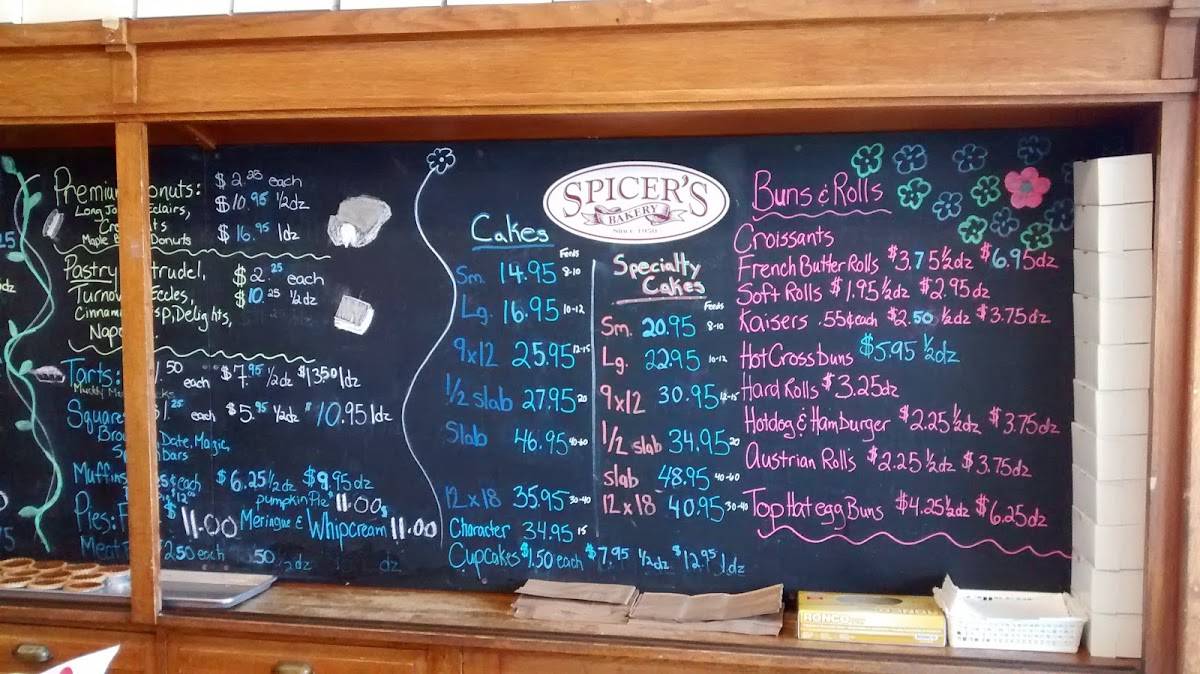 Premium Donuts:
$2.25 each
Long Jo Eclairs,
$10.95 1/2dz
Maple B Donuts
$16.95 1dz
Pastry trudel,
$2.25 each
Turnov Eccles,
$10.25 1/2dz
Cinnam sp, Delights,
Napo
Tarts: 50 each $7.95 1/2dz $13.50 1dz
Square $1.25 each $5.95 1/2dz 10.95 1dz
Brow Date, Magic,
S n bars
Muffins each $6.25 1/2dz $9.95dz
Pies: F $11.00 pumpkin Pie $11.00
Meringue & Whipcream 11.00
Meat 2.50 each 50 1/2dz dz
SPICER'S
BAKERY
SINCE 1930
Cakes
Feeds
Sm. 14.95 8-10
Lg. 16.95 10-12
9x12 25.95 12-15
1/2 slab 27.95 20
Slab 46.95 40-60
12x18 35.95 30-40
Character 34.95 15
Cupcakes $1.50 each $7.95 1/2dz $12.95 1dz
Specialty
Cakes
Feeds
Sm. 20.95 8-10
Lg. 22.95 10-12
9x12 30.95 12-15
1/2 slab 34.95 20
slab 48.95 40-60
12x18 40.95 30-40
Buns & Rolls
Croissants
French Butter Rolls $3.75 1/2dz $6.95dz
Soft Rolls $1.95 1/2dz $2.95dz
Kaisers .55¢each $2.50 1/2dz $3.75dz
Hot Cross buns $5.95 1/2dz
Hard Rolls $3.25dz
Hotdog & Hamburger $2.25 1/2dz $3.75dz
Austrian Roll's $2.25 1/2dz $3.75dz
Top Hat egg Buns $4.25 1/2dz $6.25dz
RONCO